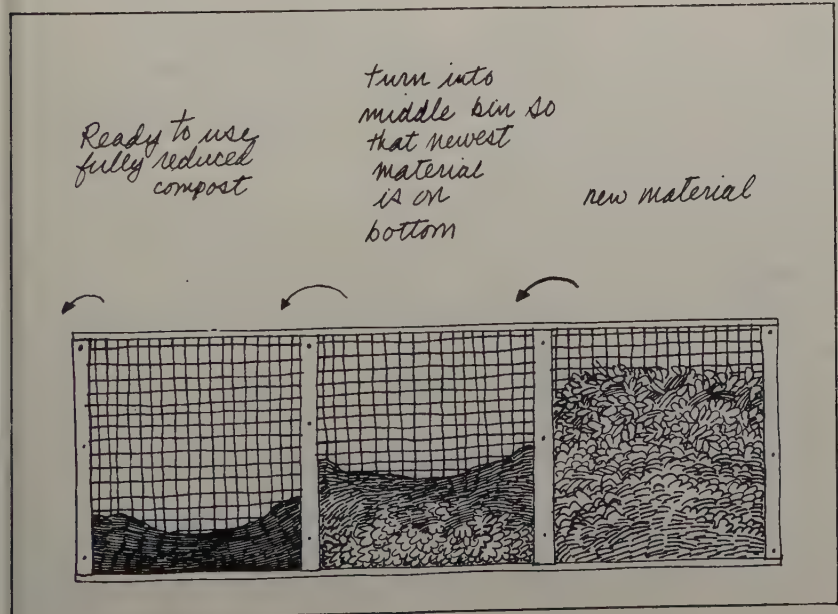 Ready to use
fully reduced
compost
turn into
middle bin so
that newest
material
is on
bottom
new material